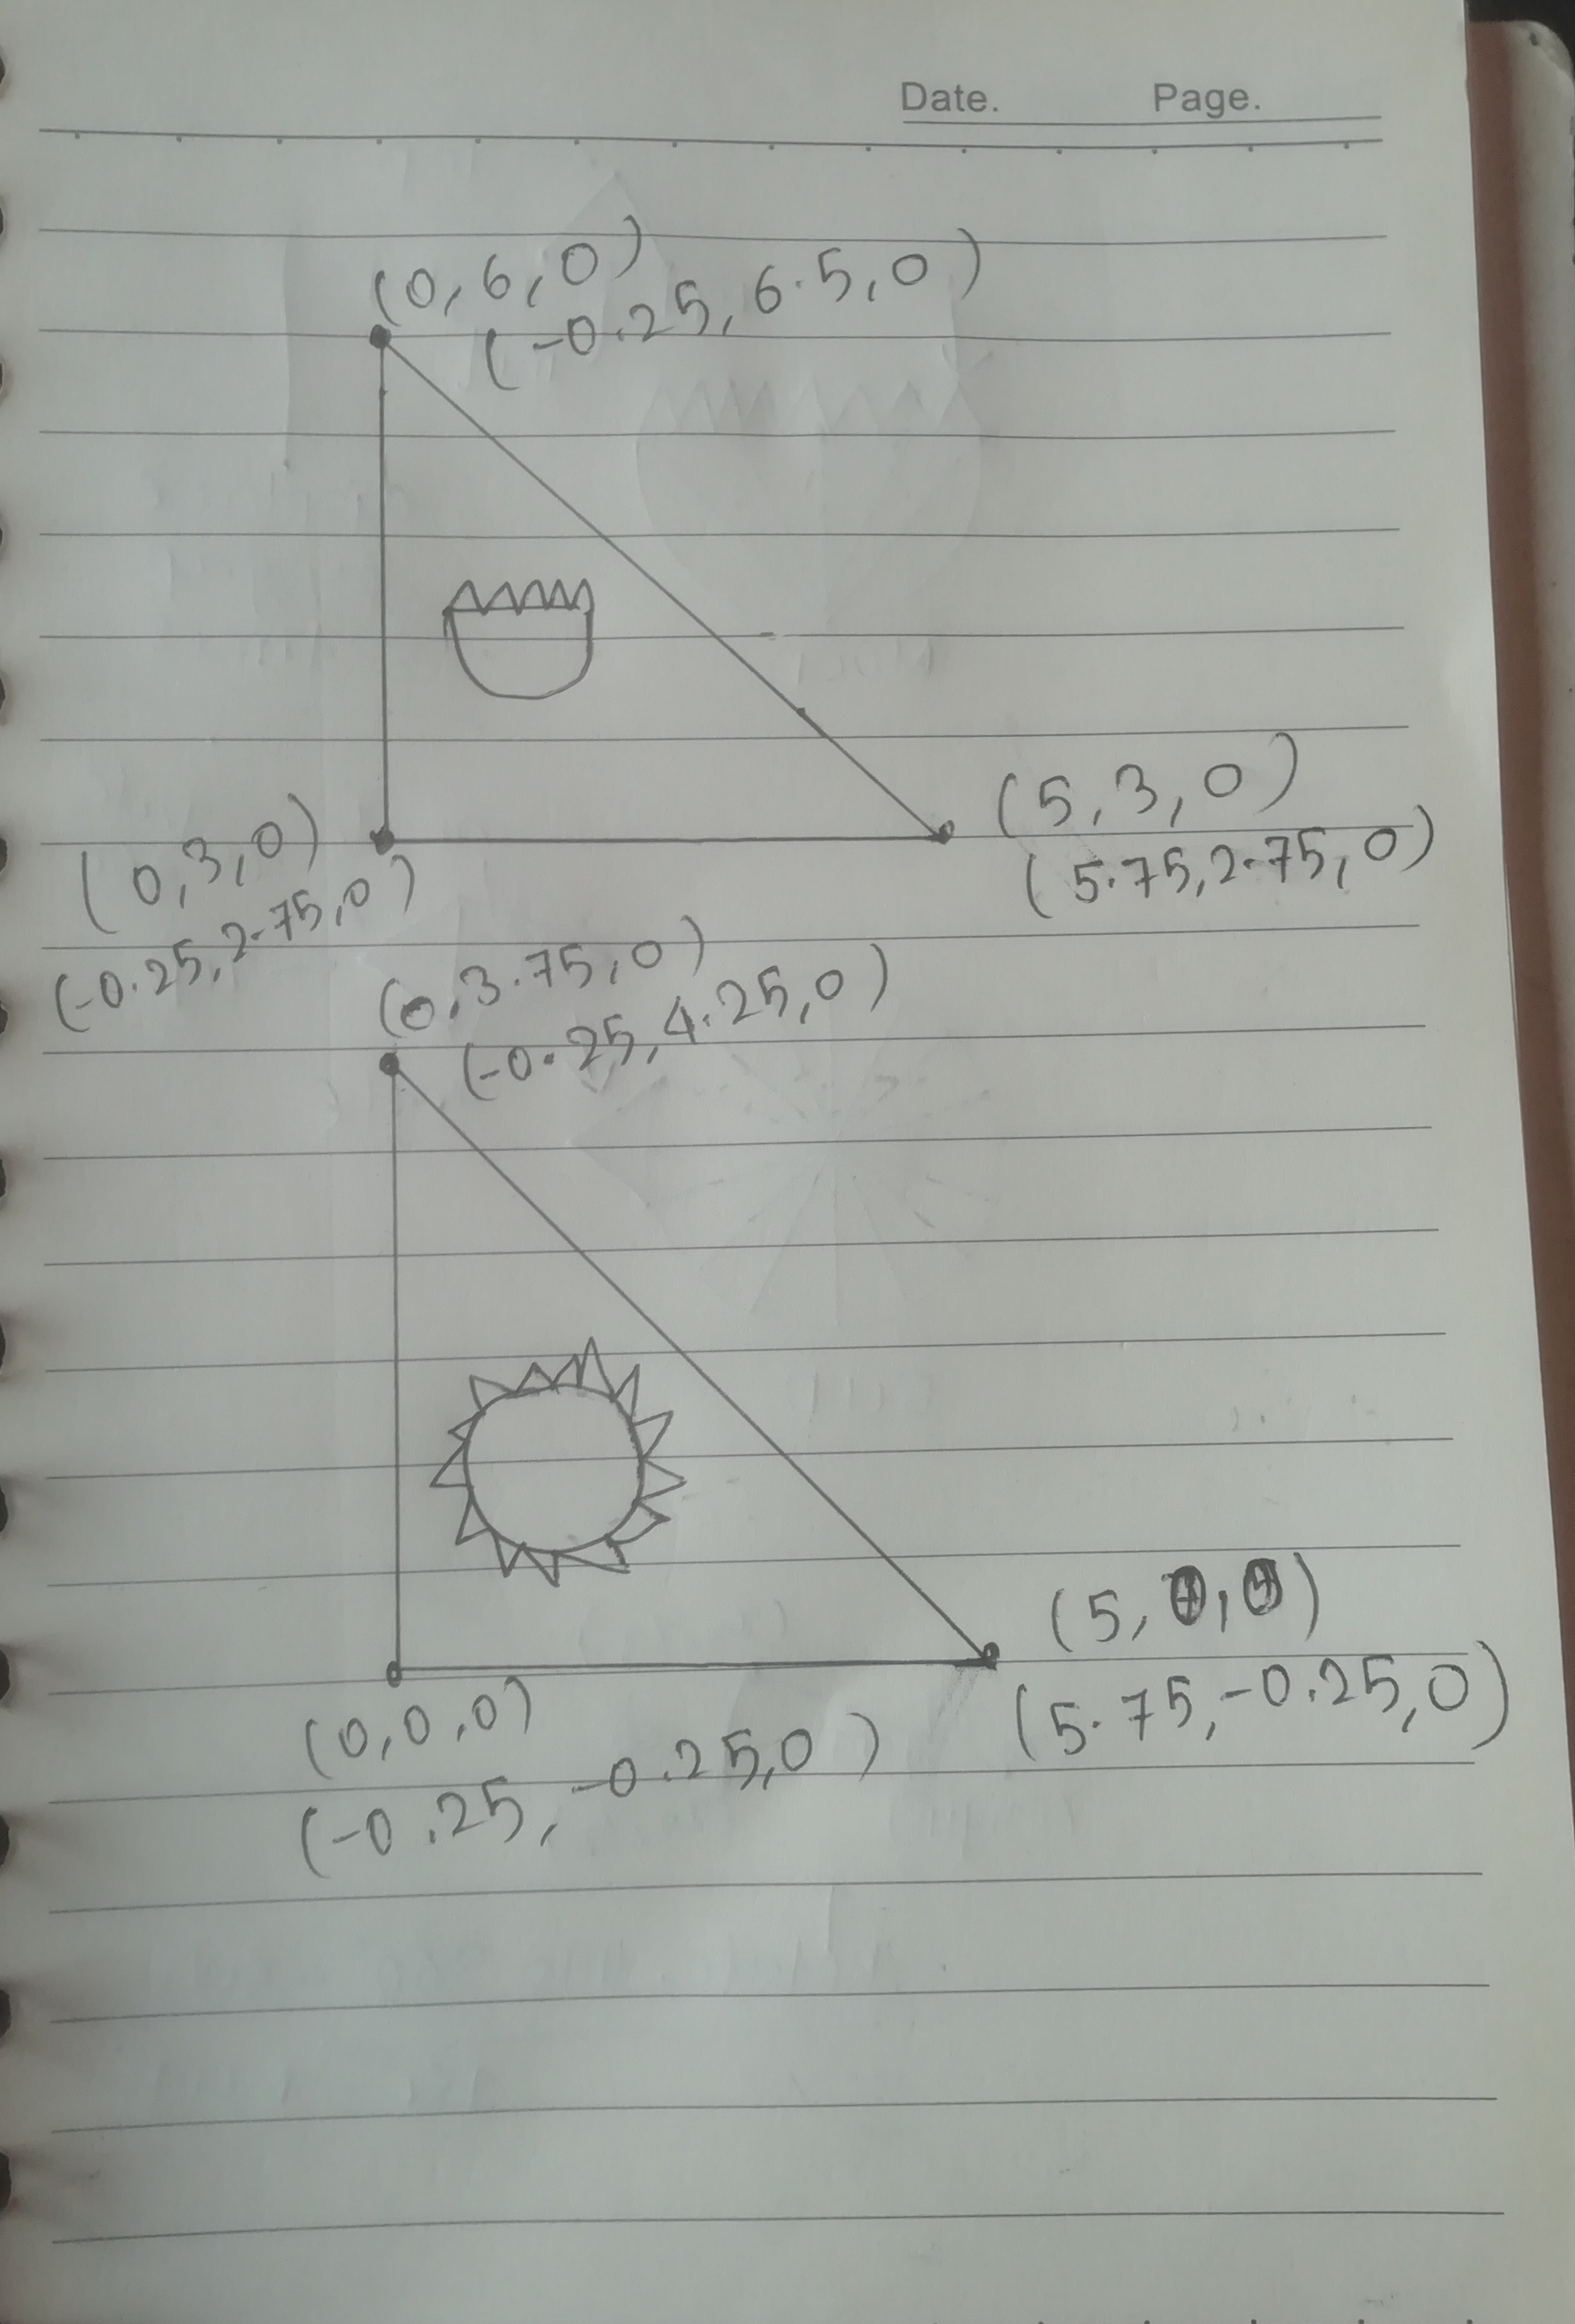 Date. Page.
(0,6,0)
(-0.25,6.5,0)
(5,3,0)
(0,3,0)
(5.75,2.75,0)
(-0.25,2.75,0)
(0,3.75,0)
(-0.25,4.25,0)
(5,0,0)
(0,0,0)
(5.75,-0.25,0)
(-0.25,-0.25,0)